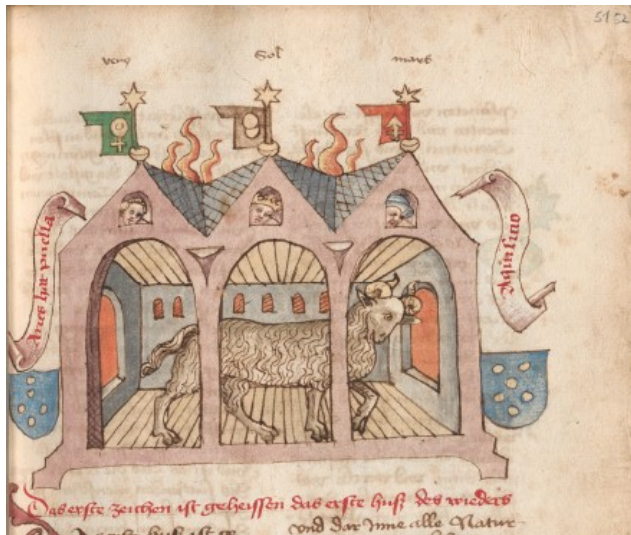 51 52
veng Sol mars
Aries hat puella
Das erste zeichen ist geheissen das erste huß des wieders
vnd dar Inne alle Natur-